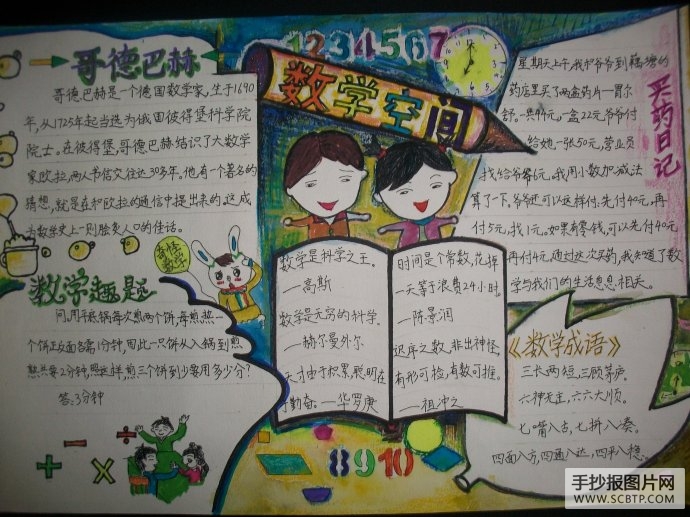 1234567
数学空间
哥德巴赫
哥德巴赫是个德国数学家,生于1690
年,从1725年起当选为俄国彼得堡科学院
院士。在彼得堡,哥德巴赫结识了大数学
家欧拉,两人书信交往达30多年。他有一个著名的
猜想,就是在和欧拉的通信中提出来的。这成
为数学史上一则脍炙人口的佳话。
奇怪
数学
数学趣题
问:用平底锅每次煎两个饼,每煎熟一
个饼正反面各需1分钟,因此一只饼从入锅到煎
熟共要2分钟,照这样,煎三个饼到少要用多少分?
答:3分钟
+ - × ÷
数学是科学之王。
——高斯
数学是无穷的科学。
——赫尔曼外尔
天才由于积累,聪明在
于勤奋。——华罗庚
时间是个常数,花掉
一天等于浪费24小时。
——陈景润
迟序之数,非出神怪,
有形可检,有数可推。
——祖冲之
8910
买药日记
星期天上午,我和爷爷到
药店里买了两盒药片
一盒22元爷爷付
给她一张50元,营业员
找给爷爷6元,我用小数加减法
算了一下。爷爷还可以这样付,先付40元,再
付5元,找1元。如果有零钱,可以先付40元
再付4元,通过这次买药,我知道了数
学与我们的生活息息相关。
《数学成语》
三长两短,三顾茅庐。
六神无主,六六大顺。
七嘴八舌,七拼八凑。
四面八方,四通八达,四平八稳。
手抄报图片网
WWW.SCBTP.COM